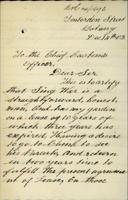 Tenterden Street
Botany
Dec 18th 83
To the Chief Customs
Officer,
Dear Sir
This is to certify
that Sing War is a
straightforward, honest,
man, and has my garden
on a lease of 10 years of
which three years has
expired. That he desires
to go to China, to see
his Parents and return
in two years time to
fulfil the present agreement
of Leases on those